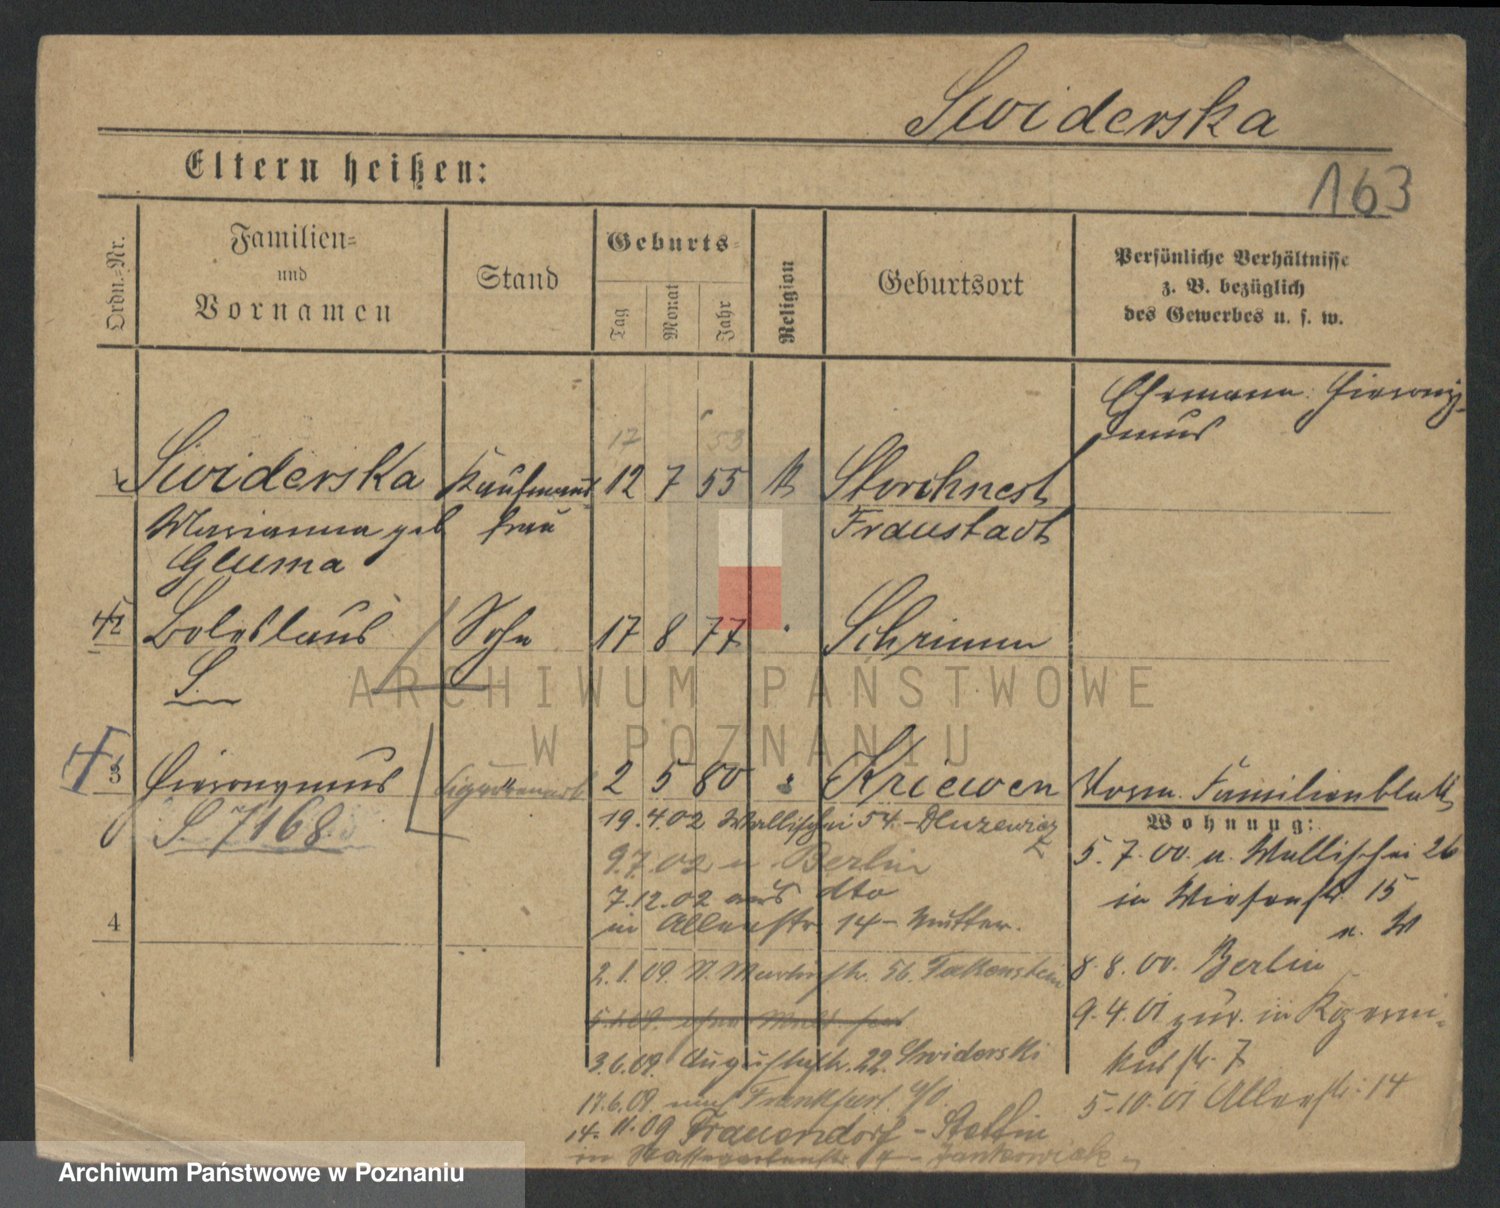 Swiderska
Eltern heißen:
163
Ordn.-Nr.
Familien-
und
Vornamen
Stand
Geburts-
Tag
Monat
Jahr
Religion
Geburtsort
Persönliche Verhältnisse
z. B. bezüglich
des Gewerbes u. s. w.
Ehemann: Hierony-
mus
17 53
Swiderska Kaufmanns 12 7 55 k Storchnest
Marianna geb frau Fraustadt
Gluma
2 Boleslaus Sohn 17 8 77 Schrimm
S.
3 Hieronymus Cigarrenarb 2 5 80 Kriewen
S. 7168.
Vorm. Familienblatt
Wohnung:
19.4.02 Wallischei 54 - Dluzewicz
9.7.02 n. Berlin
7.12.02 aus dto
in Allerstr 14 - Mutter.
4
2.1.09 St. Martinstr. 56. Falkenstein
3.6.09. Augustastr. 22. Swiderski
17.6.09 nach Frankfurt a/O.
14.11.09 Frauendorf - Stettin
5.7.00. v. Wallischei 26
in Wiesenstr. 15
8.8.00. Berlin
9.4.01 zur. in
str. 7
5.10.01 Allerstr. 14
ARCHIWUM PAŃSTWOWE
W POZNANIU
Archiwum Państwowe w Poznaniu